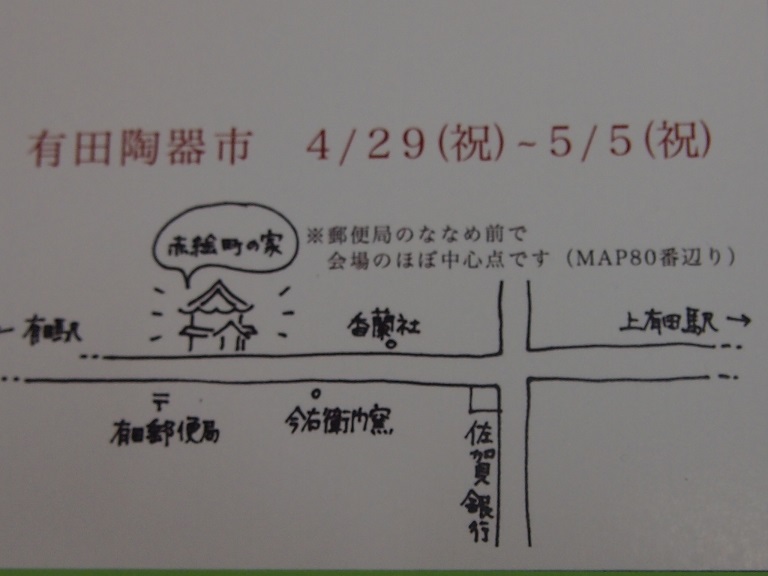 有田陶器市 4/29(祝)~5/5(祝)
赤絵町の家
※郵便局のななめ前で
会場のほぼ中心点です（MAP80番辺り）
←有田駅
香蘭社
上有田駅→
〒
有田郵便局
今右衛門窯
佐賀銀行